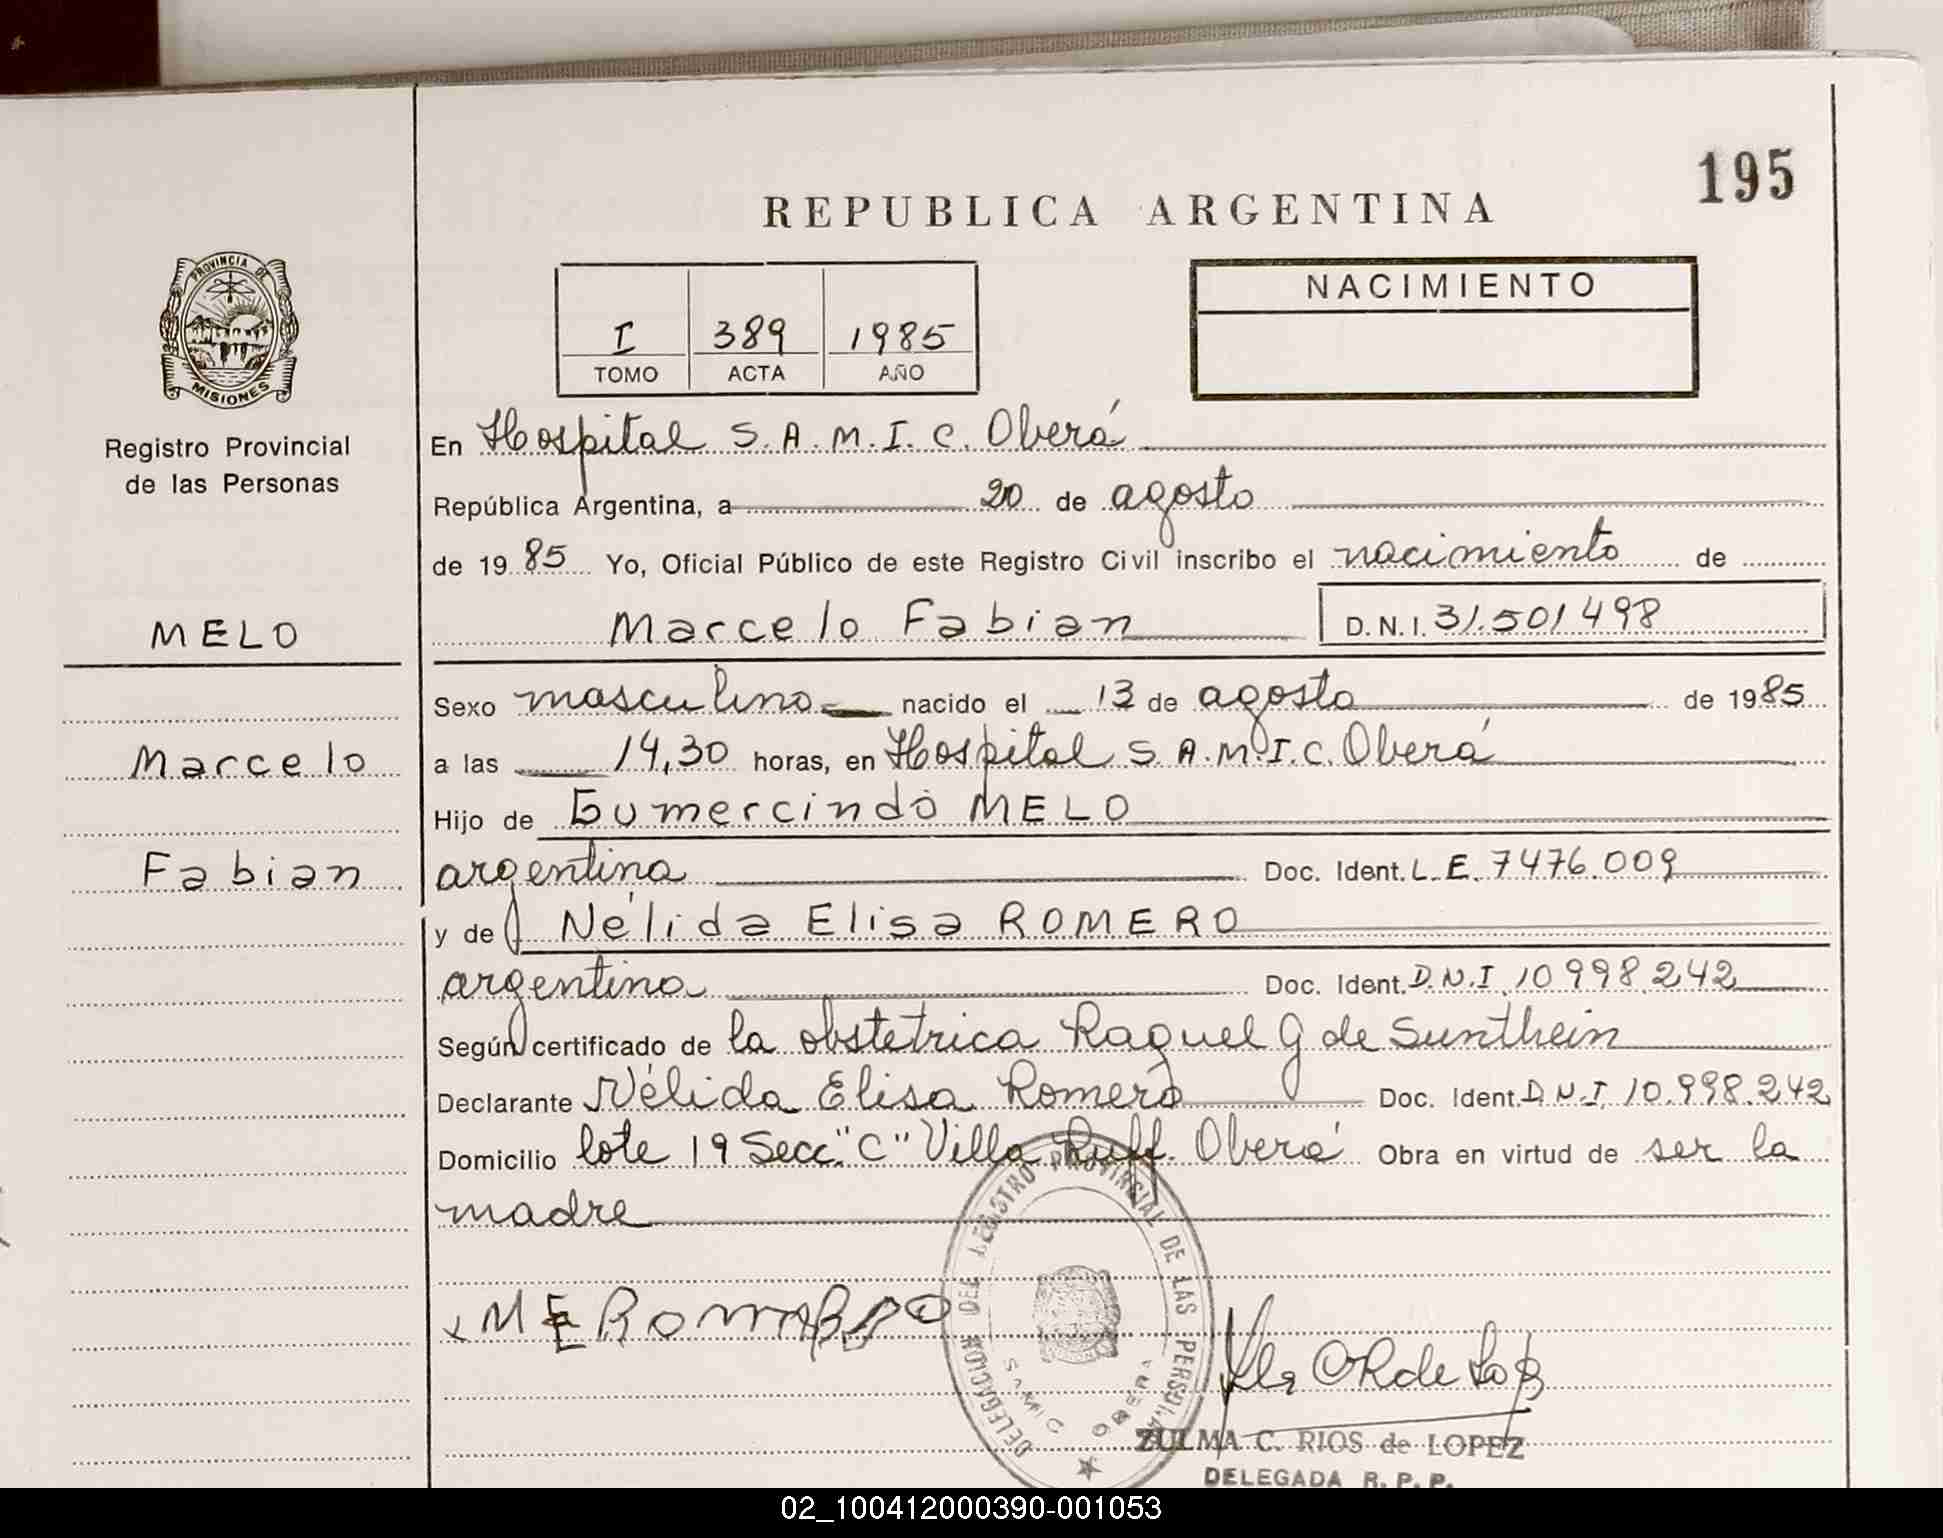 195
REPUBLICA ARGENTINA
PROVINCIA DE
MISIONES
Registro Provincial
de las Personas
I 389 1985
TOMO ACTA AÑO
NACIMIENTO
En Hospital S.A.M.I.C. Oberá
República Argentina, a 20 de agosto
de 1985 Yo, Oficial Público de este Registro Civil inscribo el nacimiento de
MELO
Marcelo Fabian D.N.I. 31.501498
Sexo masculino nacido el 13 de agosto de 1985
Marcelo
a las 14,30 horas, en Hospital S.A.M.I.C. Oberá
Hijo de Gumercindo MELO
Fabian
argentina Doc. Ident. L.E. 7476.009
y de Nélida Elisa ROMERO
argentina Doc. Ident. D.N.I. 10998.242
Según certificado de la obstetrica Raquel G de Sunthein
Declarante Nélida Elisa Romero Doc. Ident. D.N.I. 10.998.242
Domicilio lote 19 Secc. "C" Villa Ruff. Oberá Obra en virtud de ser la
madre
DELEGACION DEL REGISTRO PROVINCIAL DE LAS PERSONAS
SAMIC OBERA
ZULMA C. RIOS de LOPEZ
DELEGADA R. P. P.
02_100412000390-001053